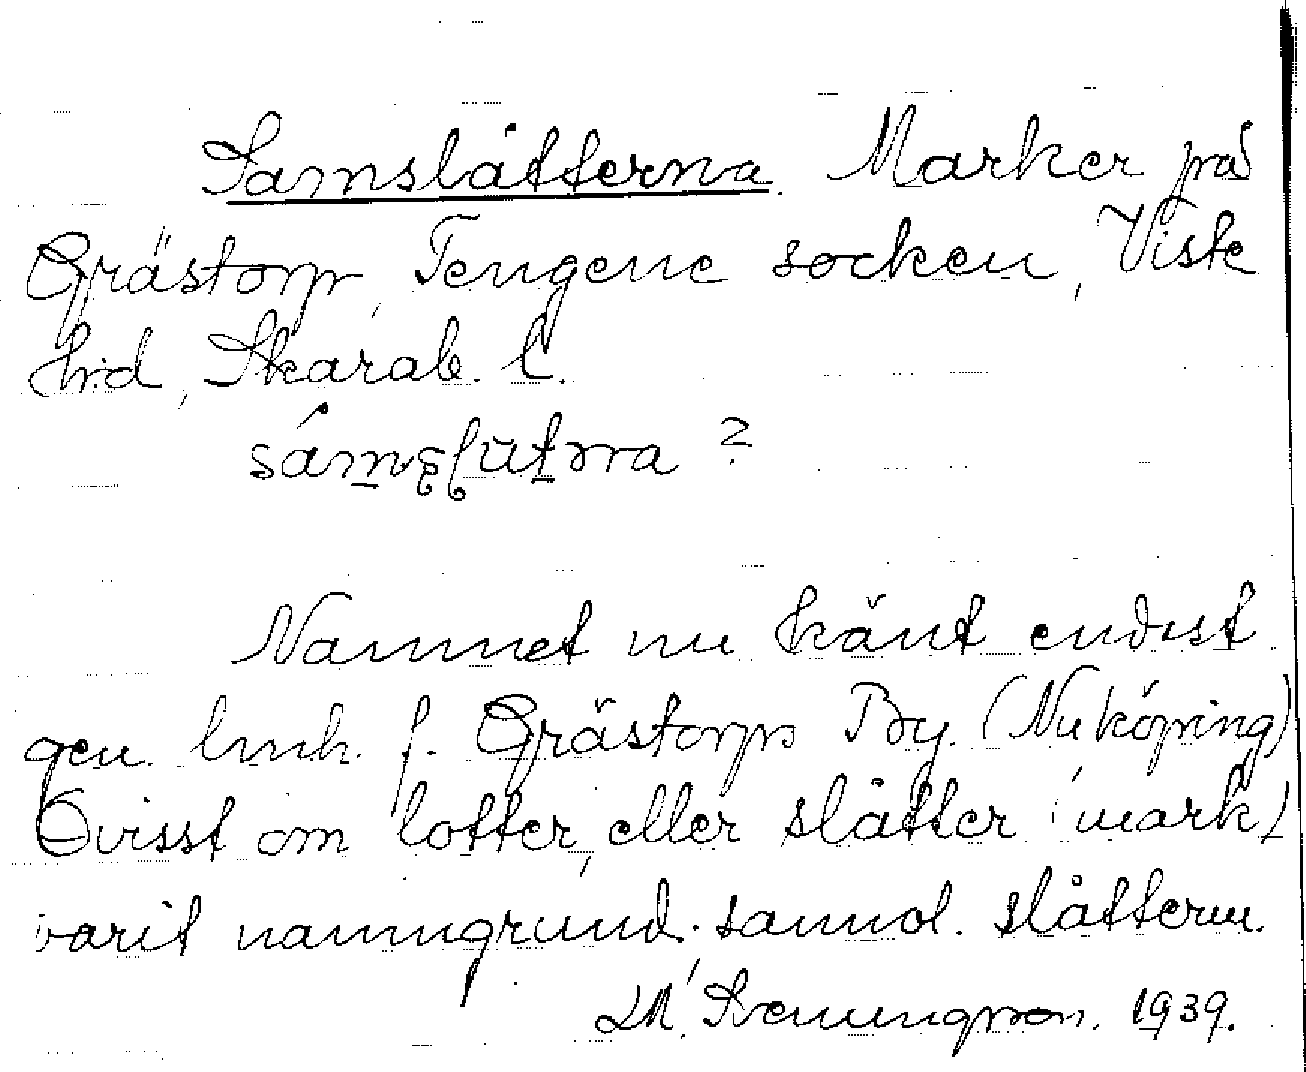 Samslåtterna. Marker på
Grästorp, Tengene socken, Viste
hrd, Skarab. l.
Namnet nu känt endast
gen. lmh. f. Grästorps By. (Nuköping)
Ovisst om lotter, eller slåtter (mark)
varit namngrund. sannol. slåttern.
1939.